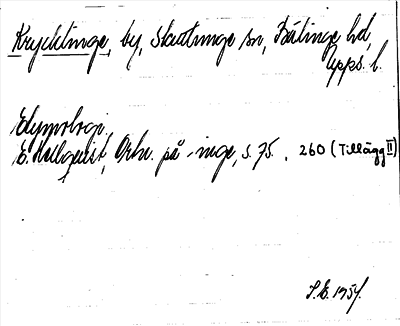 Krycklinge, by, Skuttunge sn, Bälinge hd,
Upps. l.
Etymologi.
E. Hellquist, Ortn. på -inge, s. 75. , 260 (Tillägg II)
S.E. 1954.